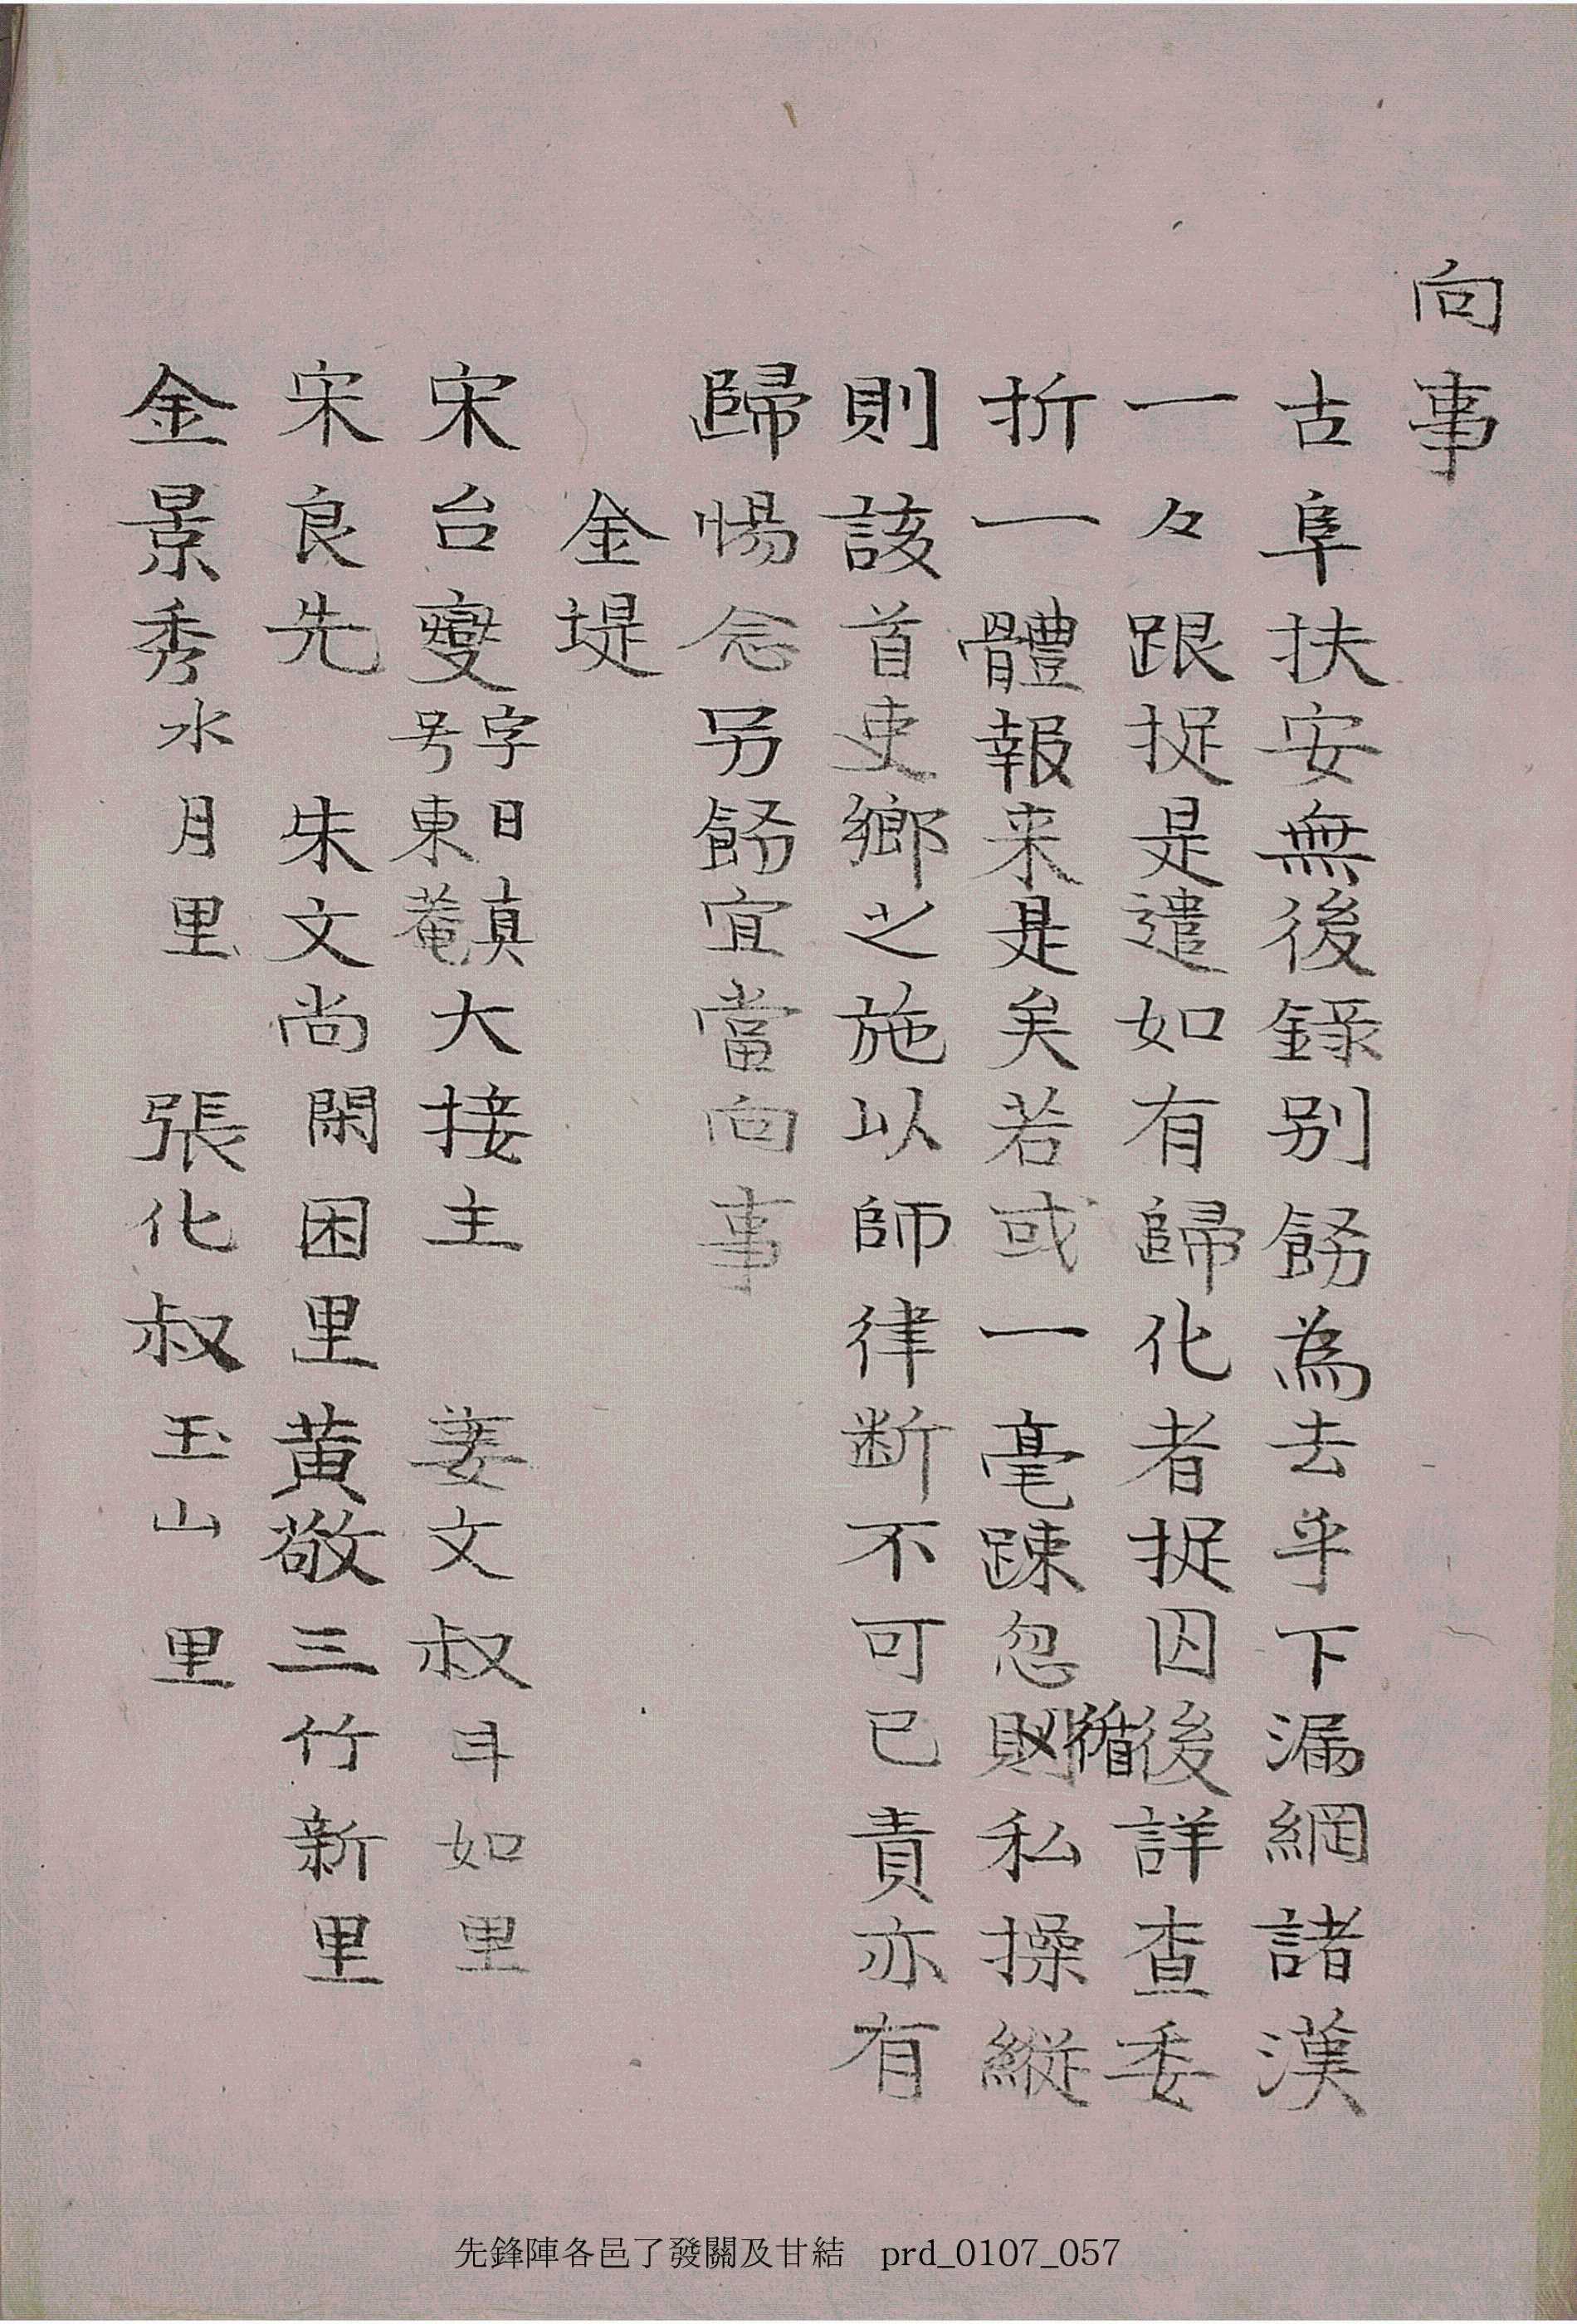 向事
古阜扶安無後錄別飭為去乎下漏網諸漢
一々跟捉是遣如有歸化者捉囚後詳查委
折一體報来是矣若或一毫踈忽循私操縱
則該首吏鄉之施以師律断不可已責亦有
歸惕念另飭宜當向事
金堤
宋台燮字日真号東菴大接主 姜文叔斗如里
宋良先 朱文尚閑困里黄敬三竹新里
金景秀水月里 張化叔玉山里
先鋒陣各邑了發關及甘結 prd_0107_057